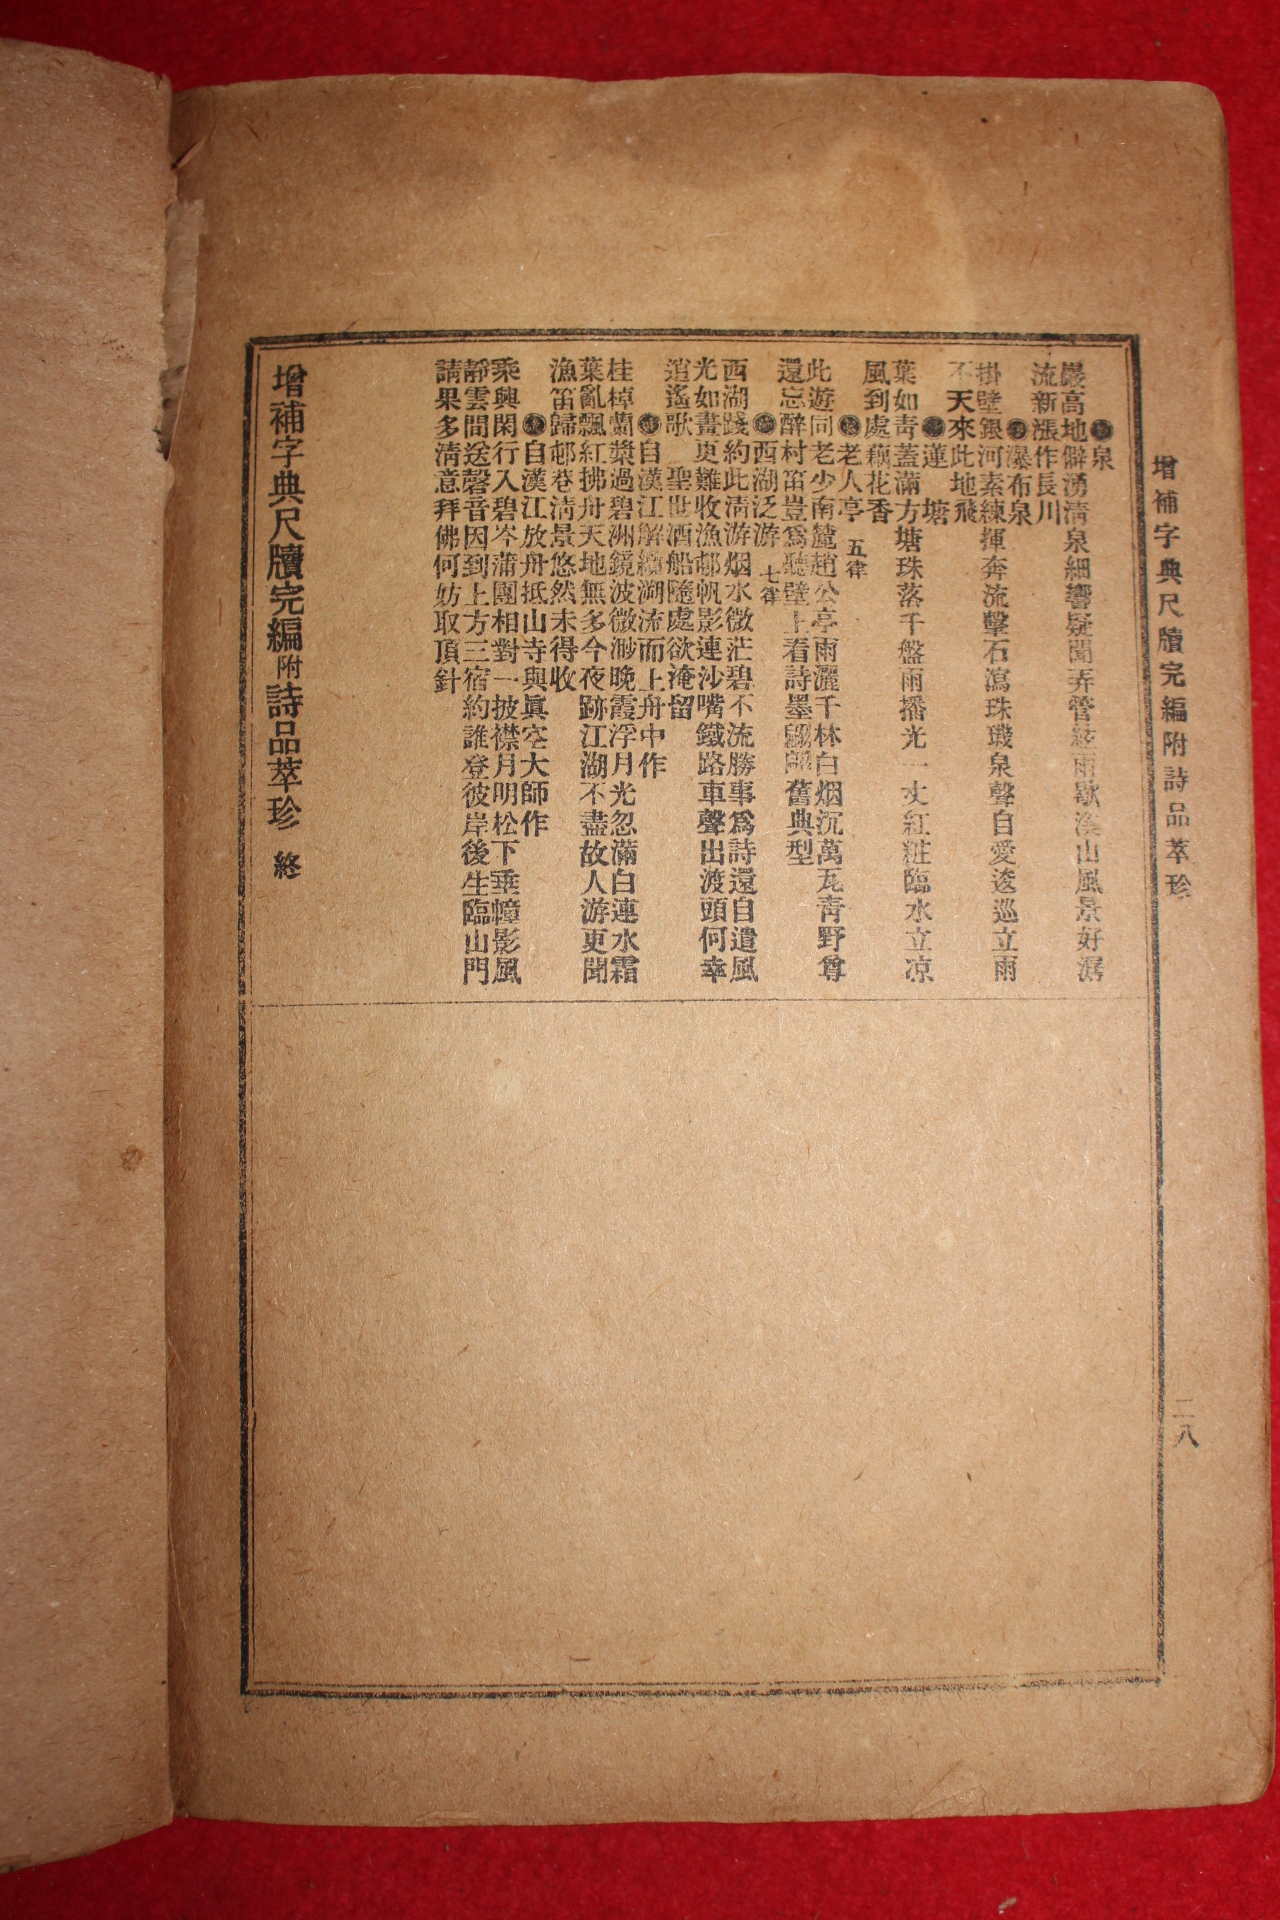 增補字典尺牘完編附詩品萃珍
二八
泉
嚴高地僻湧淸泉細響疑聞弄管絃雨歇溪山風景好潺
流新漲作長川
瀑布泉
掛壁銀河素練揮奔流擊石瀉珠璣泉聲自愛逡巡立雨
不天來此地飛
蓮塘
葉如靑蓋滿方塘珠落千盤雨播光一丈紅粧臨水立凉
風到處藕花香
老人亭 五律
此遊同老少南麓趙公亭雨灑千林白烟沉萬瓦靑野尊
還忘醉村笛豈爲聽壁上看詩墨 舊典型
西湖泛游 七律
西湖踐約此淸游烟水微茫碧不流勝事爲詩還自遣風
光如畫更難收漁邨帆影連沙嘴鐵路車聲出渡頭何幸
逍遙歌聖世酒船隨處欲淹留
自漢江解纜溯流而上舟中作
桂棹蘭槳過碧洲鏡波微渺晚霞浮月光忽滿白連水霜
葉亂飄紅拂舟天地無多今夜跡江湖不盡故人游更聞
漁笛歸邨巷淸景悠然未得收
自漢江放舟抵山寺與眞空大師作
乘興閑行入碧岑蒲團相對一披襟月明松下垂幢影風
靜雲間送磬音因到上方三宿約誰登彼岸後生臨山門
請果多淸意拜佛何妨取頂針
增補字典尺牘完編附詩品萃珍 終